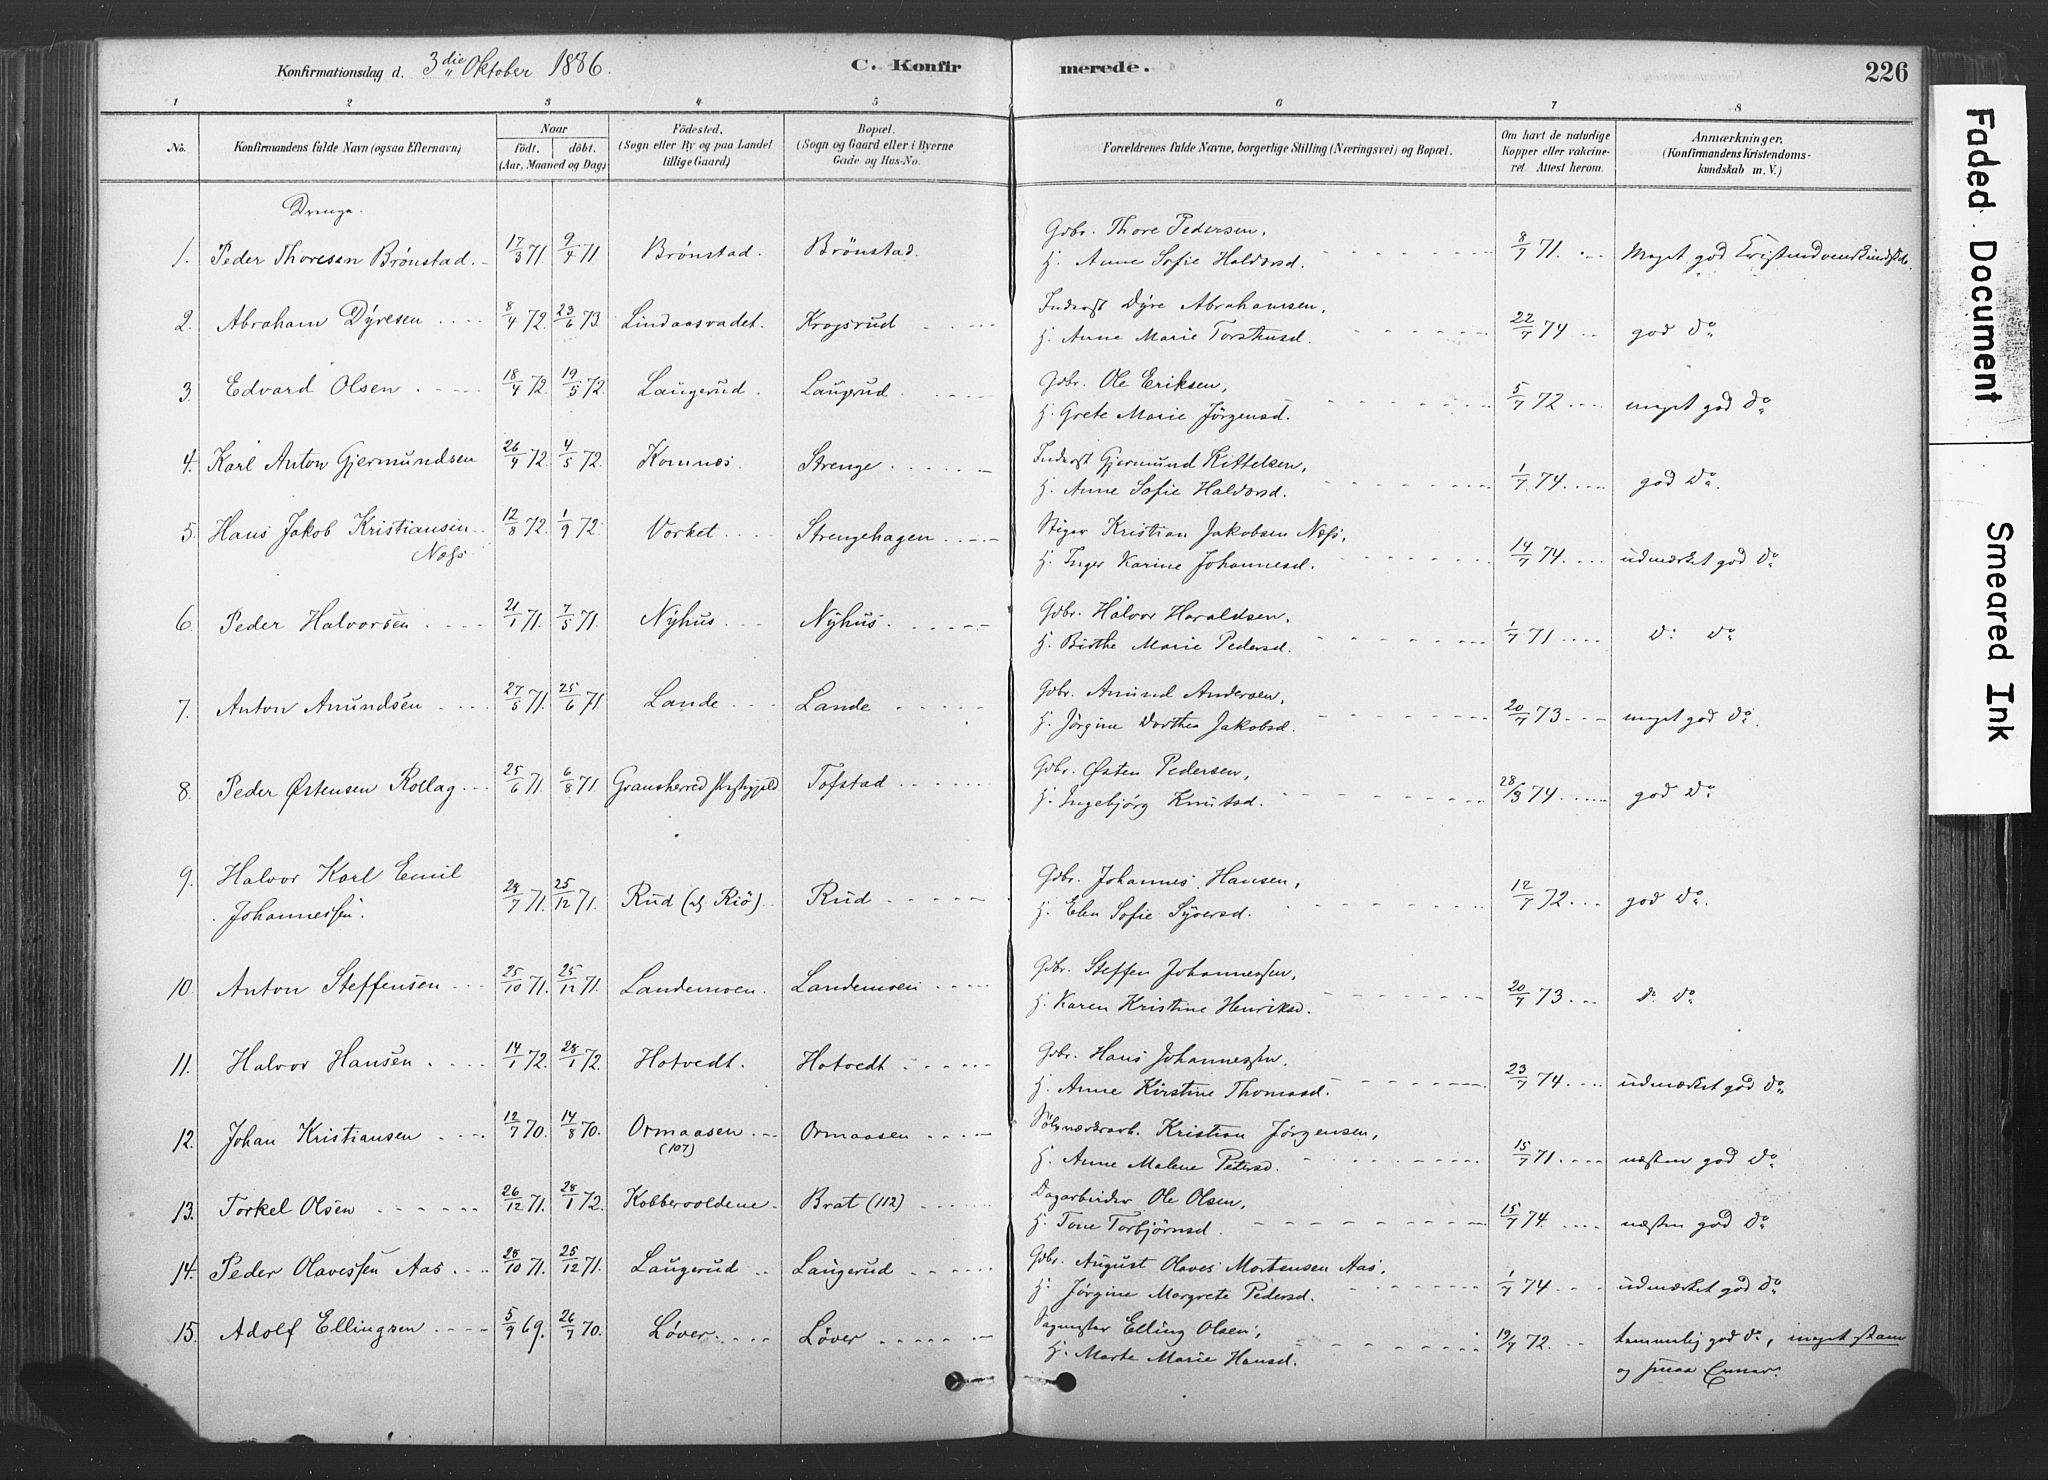 Konfirmationsdag d. 3die Oktober 1886.
C. Konfirmerede.
226
1 2 3 4 5 6 7 8
No.
Konfirmandens fulde Navn (ogsaa Efternavn)
Naar
födt. döbt.
(Aar, Maaned og Dag)
Födested.
(Sogn eller By og paa Landet
tillige Gaard)
Bopæl.
(Sogn og Gaard eller i Byerne
Gade og Hus-No.
Forældrenes fulde Navne, borgerlige Stilling (Næringsvei) og Bopæl.
Om havt de naturlige
Kopper eller vakcine-
ret. Attest herom.
Anmærkninger,
(Konfirmandens Kristendoms-
kundskab m. V.)
Drenge.
1. Peder Thoresen Brønstad. 17/3 71. 9/4 71 Brønstad. Brönstad. Gdbr. Thore Pedersen,
H. Anne Sofie Haldorsd. 8/7 71. Meget god
2. Abraham Dÿresen 8/4 72. 23/6 73. Lindaasvadet. Krogsrud Inderst Dÿre Abrahamsen,
H. Anne Marie Torstensd. 22/7 74 god Do
3. Edvard Olsen 18/4 72. 19/5 72. Laugerud. Laugerud Gdbr. Ole Eriksen,
H. Grete Marie Jörgensd. 5/7 72 meget god Do
4. Karl Anton Gjermundsen 26/4 72. 4/5 72. Komnæs. Strenge Inderst Gjermund Kittelsen,
H. Anne Sofie Haldorsd. 1/7 74. god Do.
5. Hans Jakob Kristiansen
Næss 12/8 72. 1/9 72. Vorket Strengehagen Stiger Kristian Jakobsen Næss,
H. Inger Karine Johannesd. 14/7 74. udmærket god Do
6. Peder Halvorsen 21/1 71. 7/5 71. Nÿhus Nÿhus. Gdbr. Halvor Haraldsen,
H. Birthe Marie Pedersd. 1/7 71 Do Do
7. Anton Amundsen 27/5 71. 25/6 71 Lande Lande Gdbr. Amund Andersen,
H. Jörgine Dorthea Jakobsd. 20/7 73 meget god Do.
8. Peder Østensen Rollag 25/6 71. 6/8 71. Gransherred Præstegjeld Tofstad Gdbr. Østen Pedersen,
H. Ingebjörg Knutsd. 28/3 74 god Do
9. Halvor Karl Emil
Johannessen. 28/7 71. 25/12 71. Rud ( Riö) Rud Gdbr. Johannes Hansen,
H. Elen Sofie Sÿversd. 12/7 72. god Do.
10. Anton Steffensen 25/10 71. 25/12 71. Landemoen. Landemoen Gdbr. Steffen Johannessen,
H. Karen Kristine Henriksd. 20/7 73 Do Do
11. Halvor Hansen 14/1 72. 28/1 72. Hotvedt. Hotvedt Gdbr. Hans Johannessen,
H. Anne Kirstine Thomasd. 23/7 74. udmærket god Do
12. Johan Kristiansen 12/7 70. 14/8 70. Ormaasen
(107) Ormaasen Sölvværksarb. Kristian Jörgensen,
H. Anne Malene Petersd. 15/7 71 næsten god Do
13. Torkel Olsen 26/12 71. 28/1 72. Kobbervoldene Brat (112) Dagarbeider Ole Olsen,
H. Tone Torbjörnsd. 15/7 74. næsten god Do
14. Peder Olavessen Aas 28/10 71. 25/12 71. Laugerud Laugerud Gdbr. August Olaves Mortensen Aas,
H. Jörgine Margrete Pedersd. 1/7 74 udmærket god Do
15. Adolf Ellingsen 5/9 69. 26/7 70. Løver. Løver Sagmester Elling Olsen,
H. Marte Marie Hansd. 19/7 72. temmelig god Do, meget stam
og
Faded Document
Smeared Ink